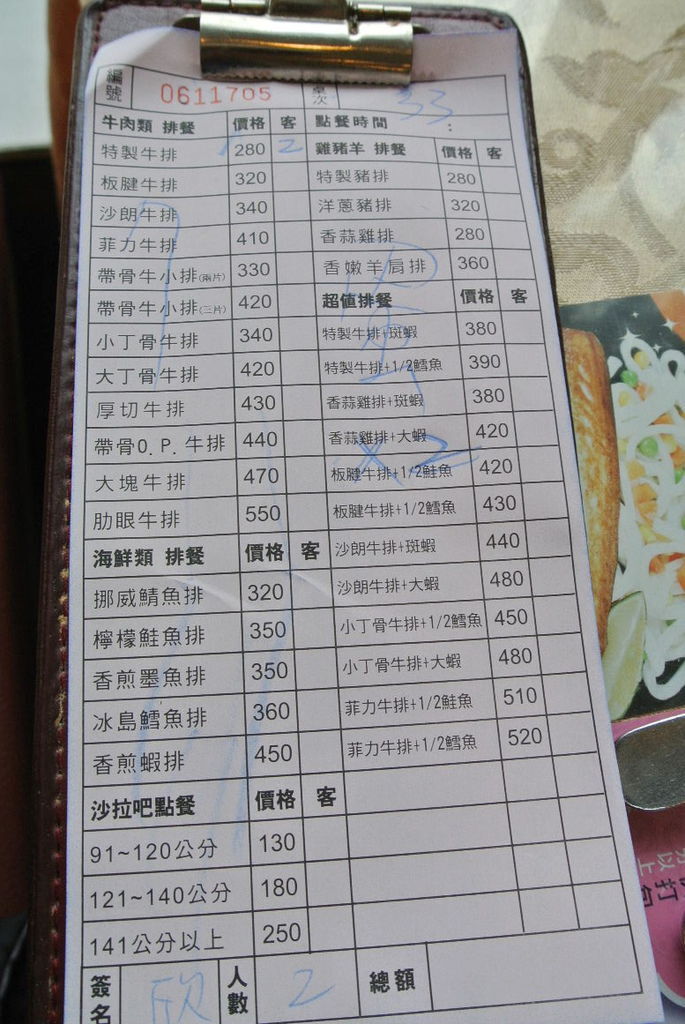 編號 0611705 桌次 33
牛肉類 排餐 價格 客
特製牛排 280 2
板腱牛排 320
沙朗牛排 340
菲力牛排 410
帶骨牛小排(兩片) 330
帶骨牛小排(三片) 420
小丁骨牛排 340
大丁骨牛排 420
厚切牛排 430
帶骨O.P.牛排 440
大塊牛排 470
肋眼牛排 550
海鮮類 排餐 價格 客
挪威鯖魚排 320
檸檬鮭魚排 350
香煎墨魚排 350
冰島鱈魚排 360
香煎蝦排 450
沙拉吧點餐 價格 客
91~120公分 130
121~140公分 180
141公分以上 250
點餐時間 :
雞豬羊 排餐 價格 客
特製豬排 280
洋蔥豬排 320
香蒜雞排 280
香嫩羊肩排 360
超值排餐 價格 客
特製牛排+斑蝦 380
特製牛排+1/2鱈魚 390
香蒜雞排+斑蝦 380
香蒜雞排+大蝦 420
板腱牛排+1/2鮭魚 420
板腱牛排+1/2鱈魚 430
沙朗牛排+斑蝦 440
沙朗牛排+大蝦 480
小丁骨牛排+1/2鱈魚 450
小丁骨牛排+大蝦 480
菲力牛排+1/2鮭魚 510
菲力牛排+1/2鱈魚 520
X2
簽名 欣 人數 2 總額
以上
打包